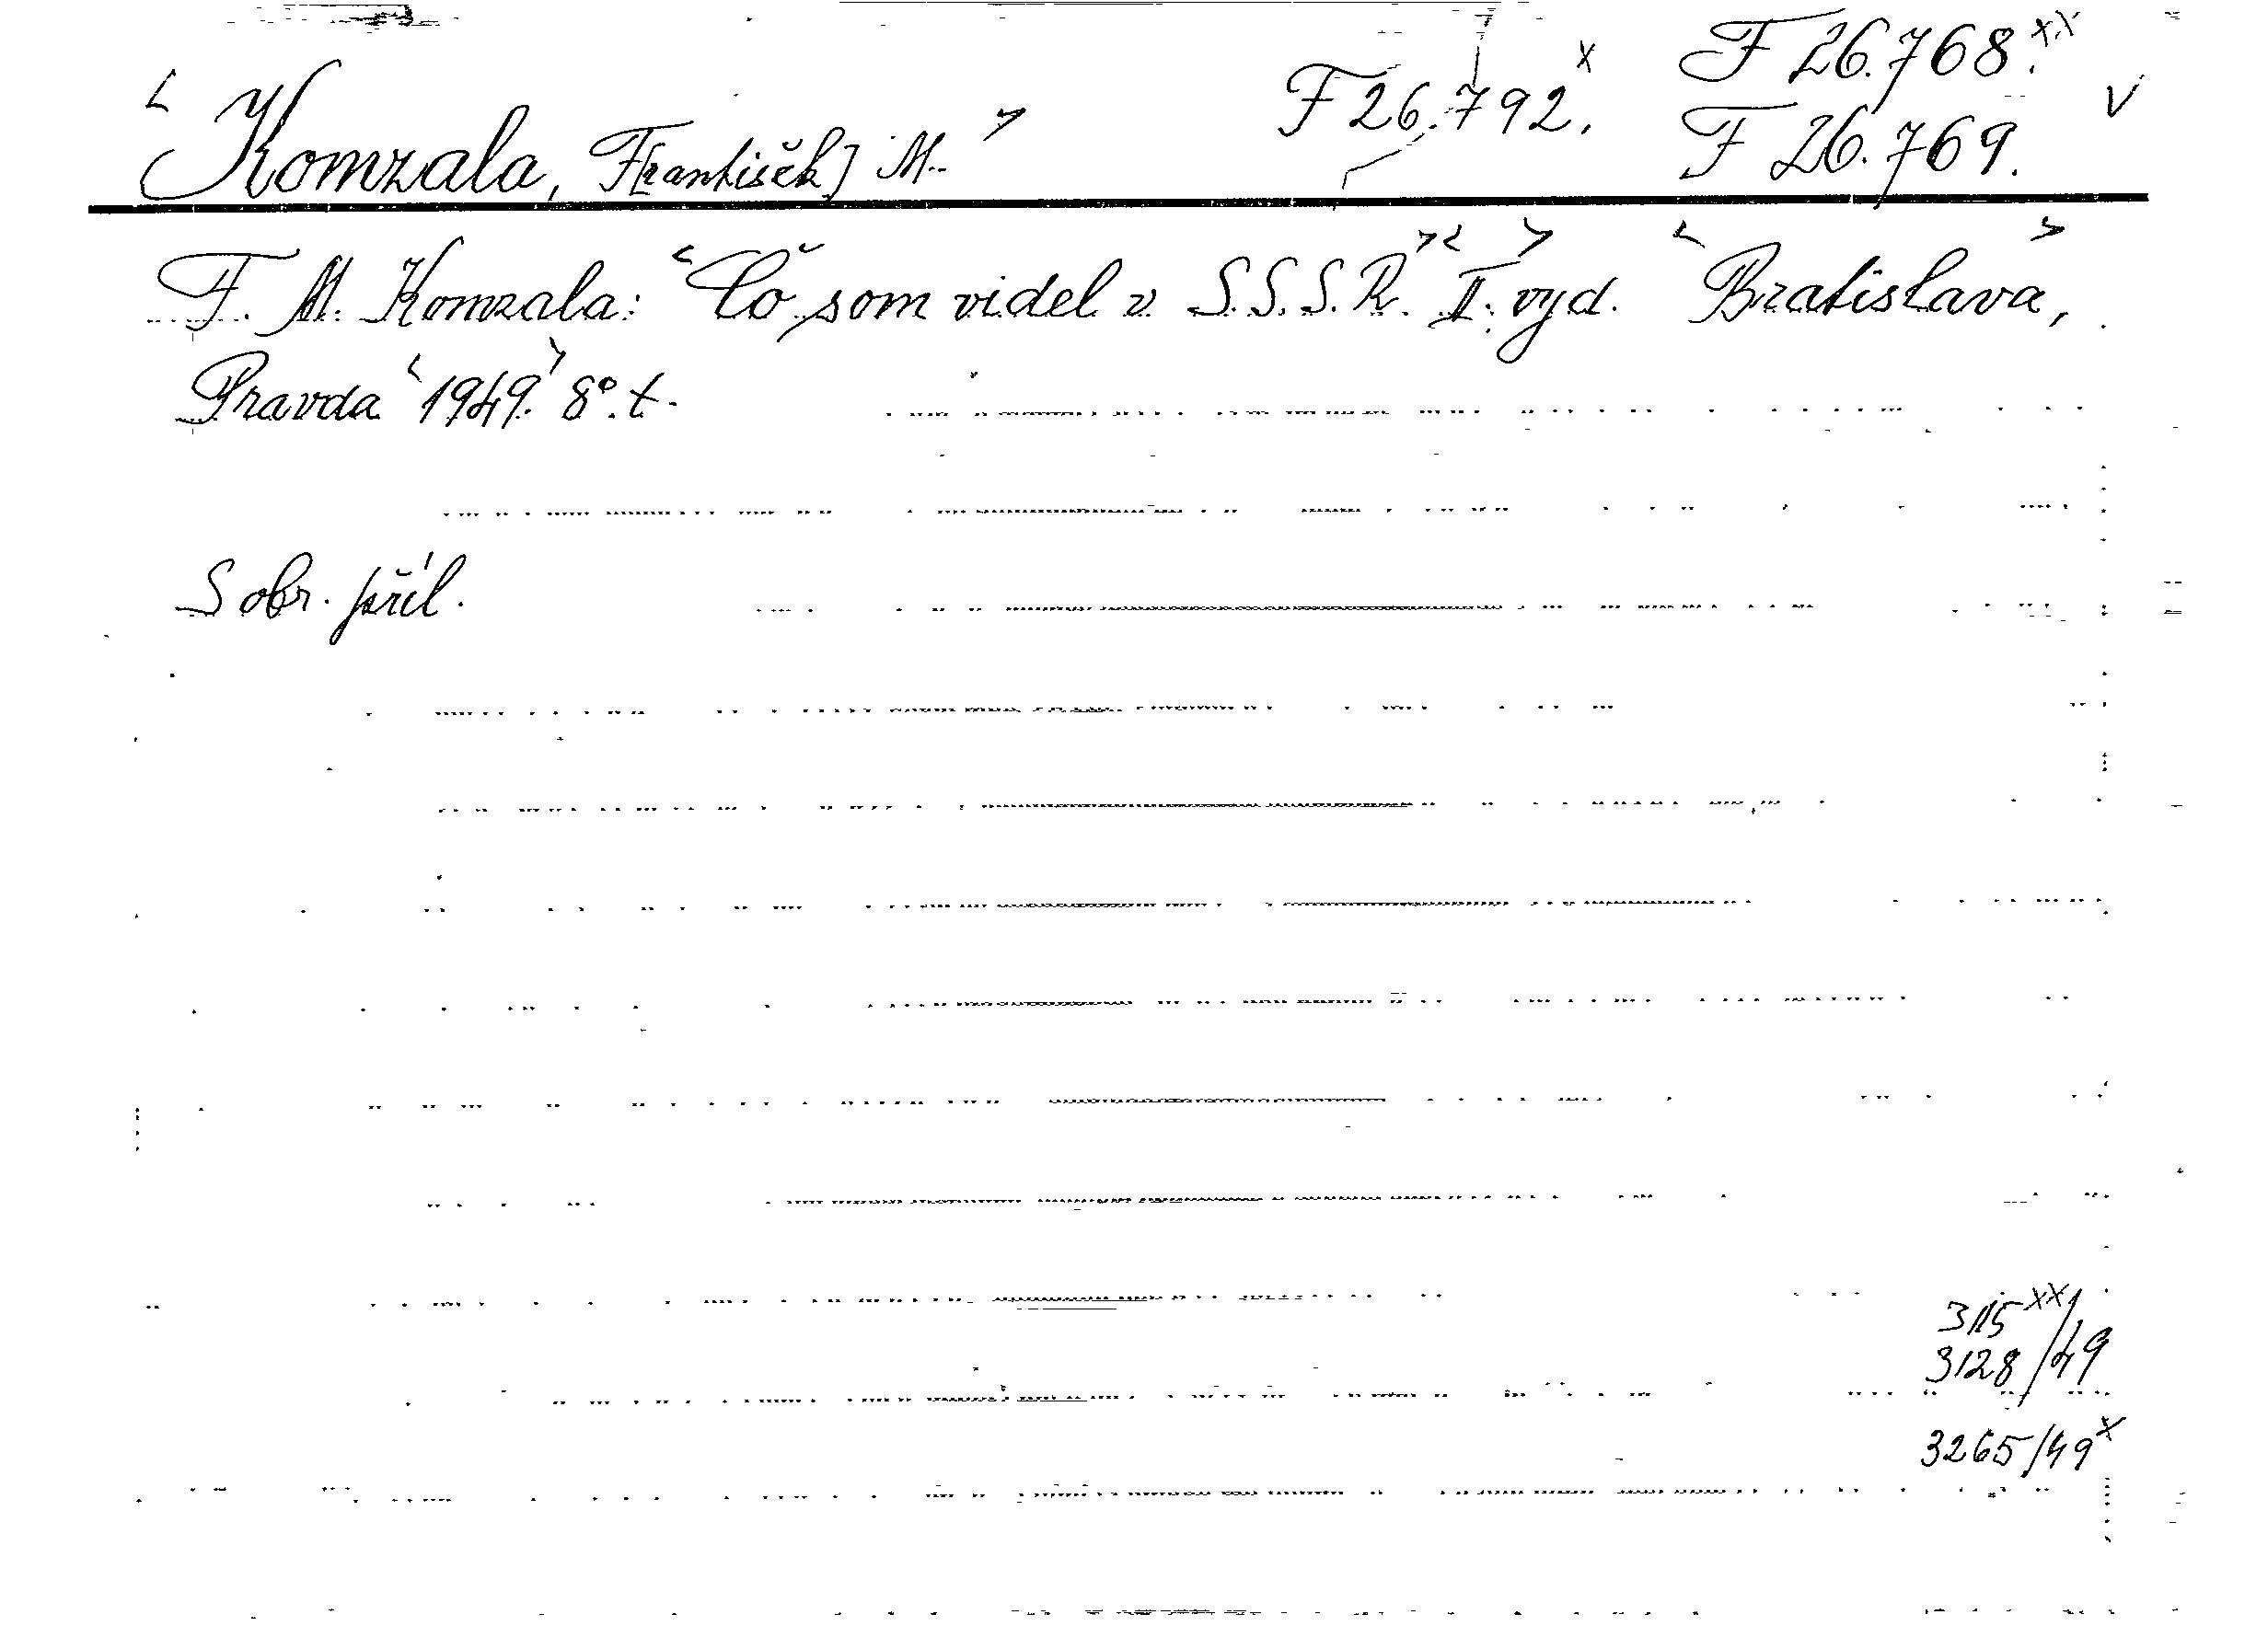 F 26.768.xx
<Komzala, F[rantišek] M.> F 26.792.x F 26.769. V
F. M. Komzala: <Čo som videl v S.S.S.R.> <II. vyd.> <Bratislava,>
Pravda <1949.> 8°. t.
S obr. příl.
3115xx
3128/49
3265/49x